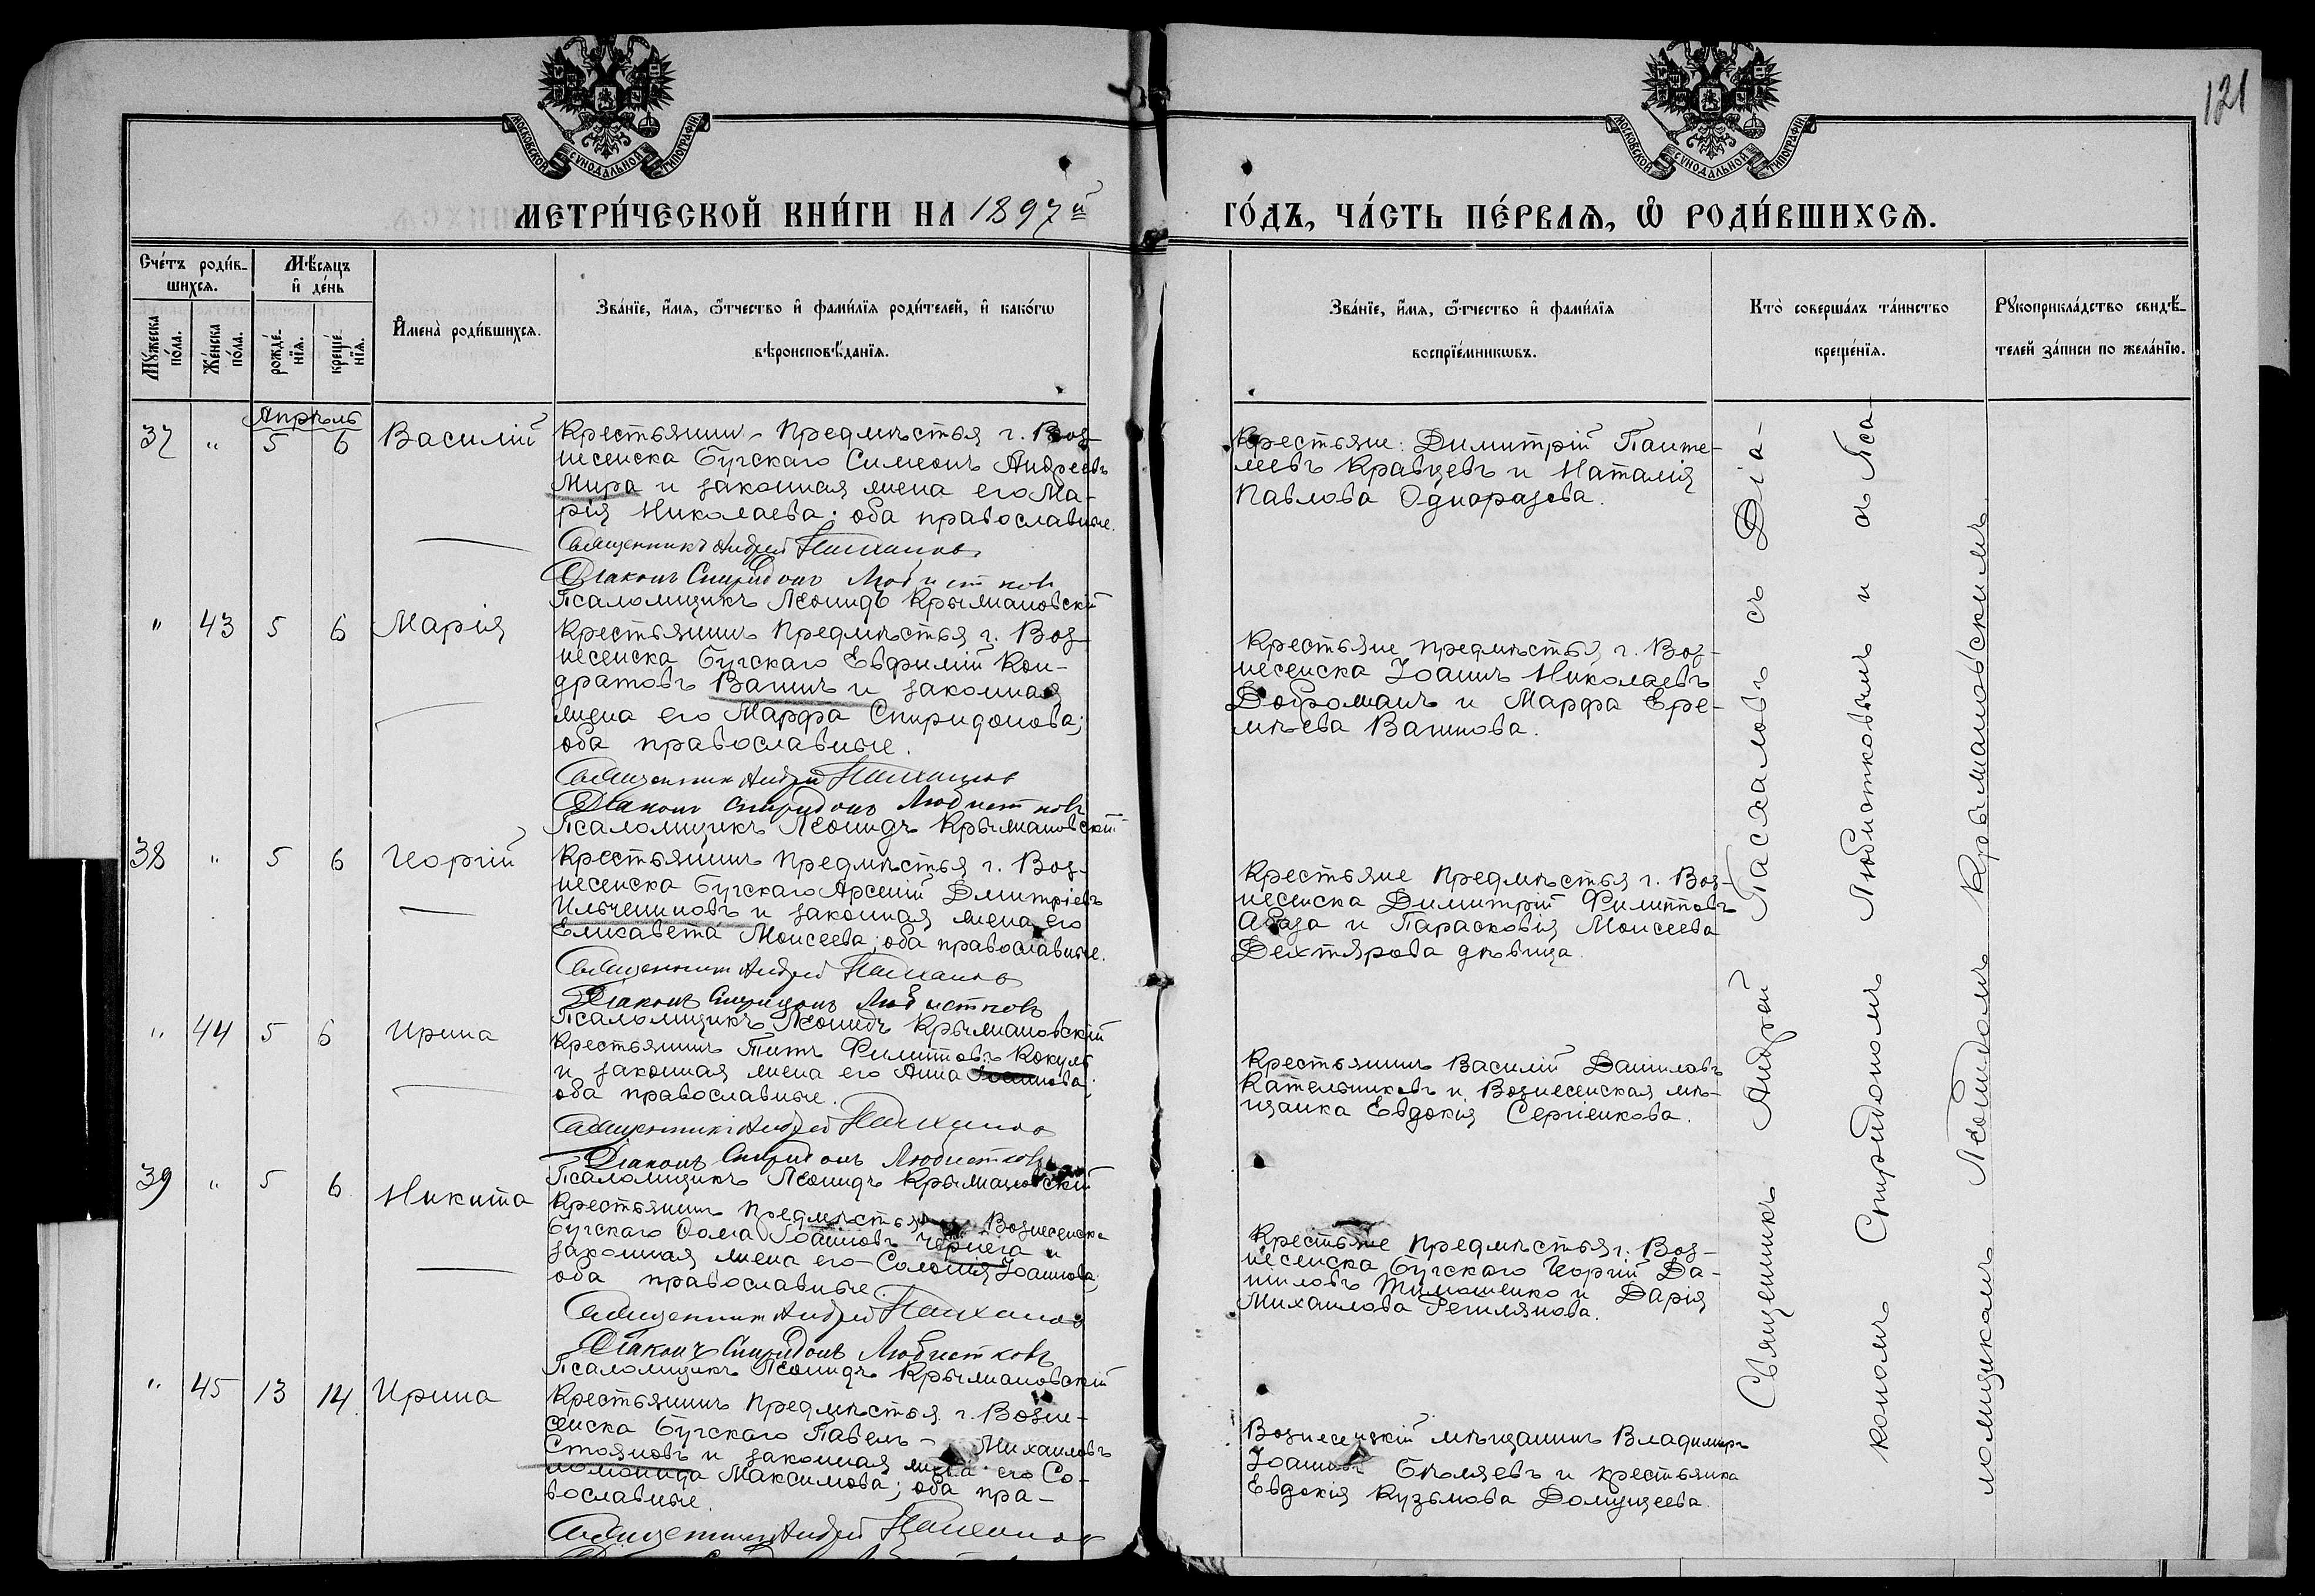 121
МОСКОВСКОЙ СѴНОДАЛЬНОЙ ТИПОГРАФІИ
МОСКОВСКОЙ СѴНОДАЛЬНОЙ ТИПОГРАФІИ
МЕТРИ́ЧЕСКОЙ КНИ́ГИ НА 1897й
ГО́ДЪ, ЧА́СТЬ ПЕ́РВАѦ, Ѡ҆ РОДИ́ВШИХСѦ.
Сче́тъ роди́в-
шихсѧ.
Мѣ́сѧцъ
и҆ де́нь
Мꙋ́жеска
по́ла.
Же́нска
по́ла.
рожде́-
нїѧ.
креще́-
нїѧ.
И҆мена̀ роди́вшихсѧ.
Зва́нїе, и҆́мѧ, ѻ҆́тчество и҆ фами́лїѧ роди́телей, и҆ како́гѡ
вѣроисповѣ́данїѧ.
Зва́нїе, и҆́мѧ, ѻ҆́тчество и҆ фами́лїѧ
воспрїе́мникѡвъ.
Кто̀ соверша́лъ та́инство
креще́нїѧ.
Рꙋкоприкла́дство свидѣ́-
телей за́писи по жела́нїю.
Апрѣль
37 " 5 6 Василій
Крестьянинъ Предмѣстья г. Воз-
несенска Бугскаго Симеонъ Андреевъ
Мира и законная жена его Ма-
рія Николаева; оба православные.
Священникъ Андрей Пасхаловъ
Діаконъ Спиридонъ Любистковъ
Псаломщикъ Леонидъ Крыжановскій
Крестьяне: Димитрій Панте-
леевъ Кравцевъ и Наталія
Павлова Одноразева.
" 43 5 6 Марія
Крестьянинъ Предмѣстья г. Воз-
несенска Бугскаго Евфимій Кон-
дратовъ Ванинъ и законная
жена его Марфа Спиридонова;
оба православные.
Священникъ Андрей Пасхаловъ
Діаконъ Спиридонъ Любистковъ
Псаломщикъ Леонидъ Крыжановскій
Крестьяне предмѣстья г. Воз-
несенска Іоаннъ Николаевъ
Доброжанъ и Марфа Ере-
мѣева Ванинова.
38 " 5 6 Георгій
Крестьянинъ предмѣстья г. Воз-
несенска Бугскаго Арсеній Дмитріевъ
Ильчениновъ и законная жена его
Елисавета Моисеева; оба православные.
Священникъ Андрей Пасхаловъ
Діаконъ Спиридонъ Любистковъ
Псаломщикъ Леонидъ Крыжановскій
Крестьяне Предмѣстья г. Воз-
несенска Димитрій Филипповъ
Абаза и Парасковія Моисеева
Дехтярова дѣвица.
" 44 5 6 Ирина
Крестьянинъ Титъ Филипповъ Кокулъ
и законная жена его Анна Іоаннова;
оба православные.
Священникъ Андрей Пасхаловъ
Діаконъ Спиридонъ Любистковъ
Псаломщикъ Леонидъ Крыжановскій
Крестьянинъ Василій Даниловъ
Кательниковъ и Вознесенская мѣ-
щанка Евдокія Сергіенкова.
39 " 5 6 Никита
Крестьянинъ предмѣстья г. Вознесенска
Бугскаго Ѳома Іоанновъ Чернега и
законная жена его Соломія Іоаннова;
оба православные.
Священникъ Андрей Пасхаловъ
Діаконъ Спиридонъ Любистковъ
Псаломщикъ Леонидъ Крыжановскій
Крестьяне предмѣстья г. Воз-
несенска Бугскаго Георгій Да-
ниловъ Тимошенко и Дарія
Михаилова Решлянова.
" 45 13 14 Ирина
Крестьянинъ Предмѣстья г. Возне-
сенска Бугскаго Павелъ - Михаиловъ
Стояновъ и законная жена его Со-
ломонида Максимова; оба пра-
вославные.
Священникъ Андрей Пасхаловъ
Вознесенскій мѣщанинъ Владимиръ
Іоанновъ Бѣляевъ и крестьянка
Евдокія Кузьмова Домущеева.
Священникъ Андрей Пасхаловъ съ Діа-
кономъ Спиридономъ Любистковымъ и съ Пса-
ломщикомъ Леонидомъ Крыжановскимъ